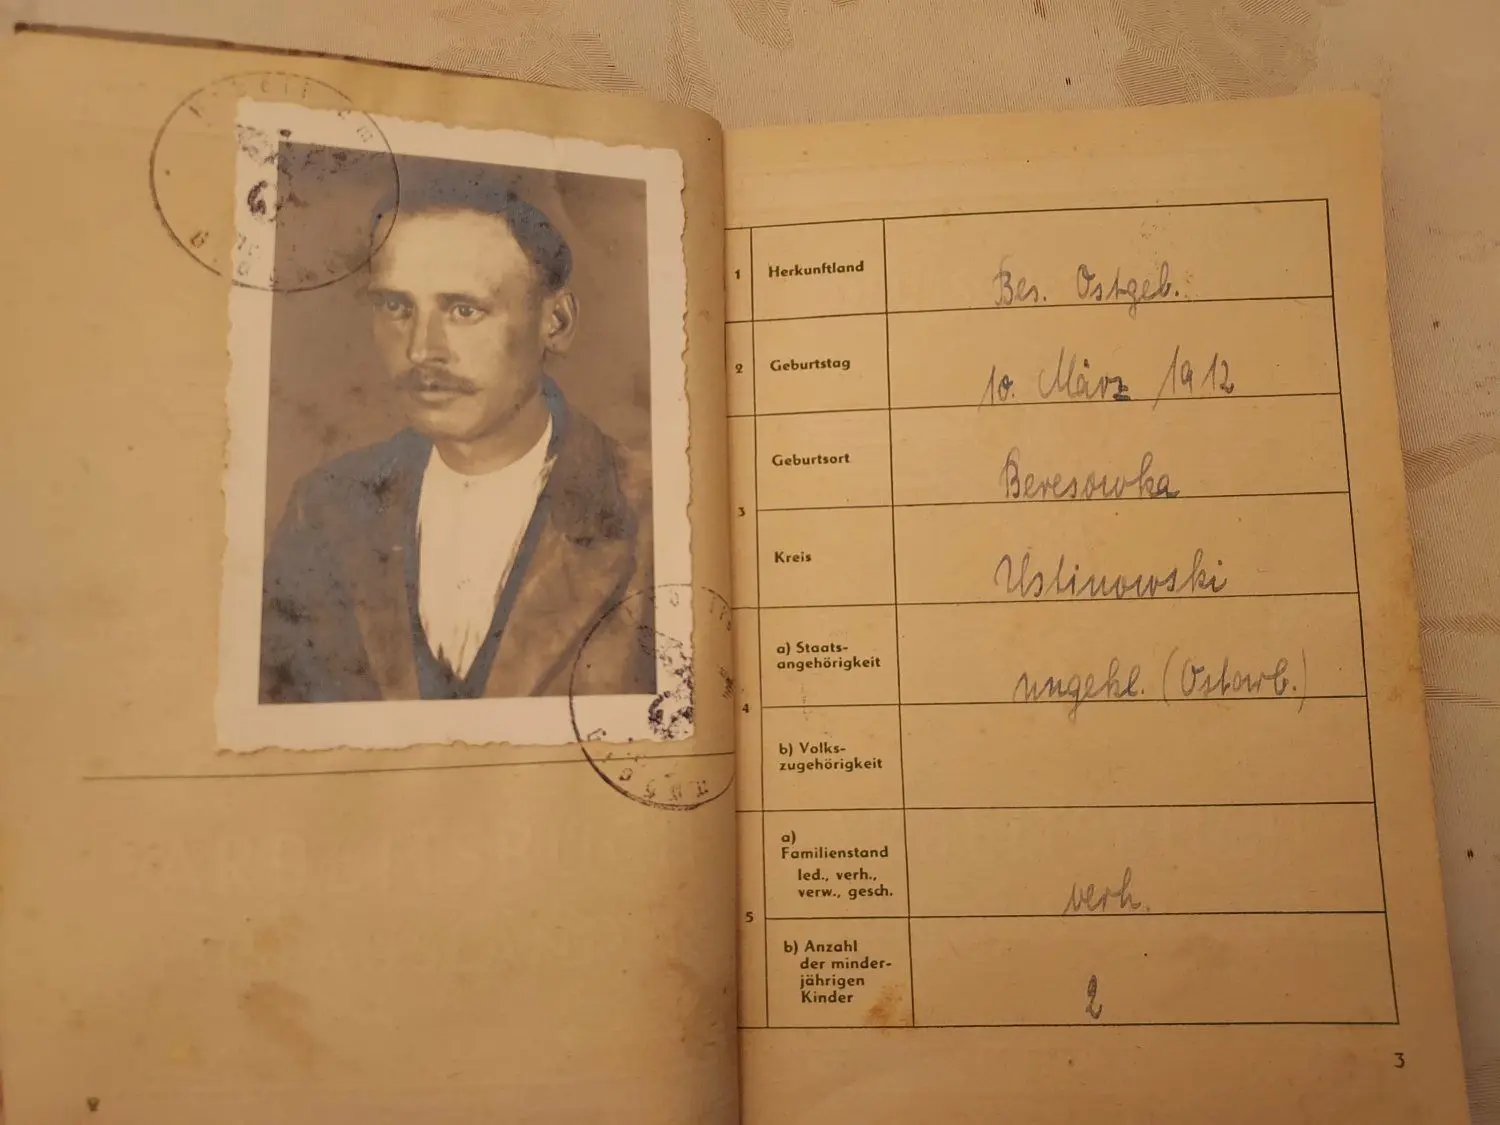 1
Herkunftland
Bes. Ostgeb.
2
Geburtstag
10. März 1912
Geburtsort
Beresowka
3
Kreis
Ustinowski
a) Staats-
angehörigkeit
ungekl. (Ostarb.)
4
b) Volks-
zugehörigkeit
a)
Familienstand
led., verh.,
verw., gesch.
verh.
5
b) Anzahl
der minder-
jährigen
Kinder
2
3